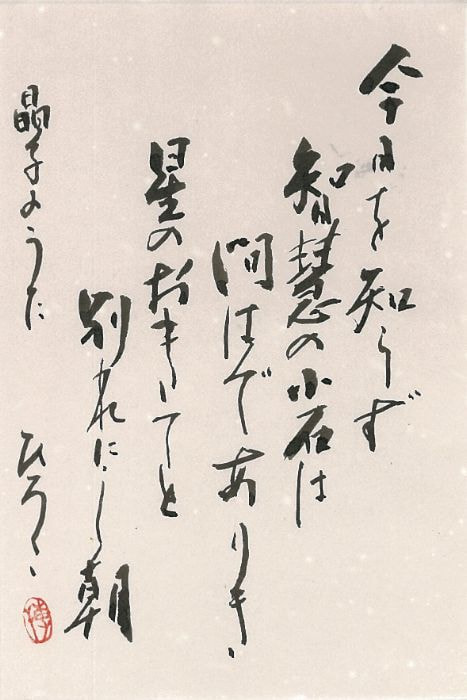 今日を知らず
智慧の小石は
問はでありき
星のおきてと
別れにし朝
晶子のうた